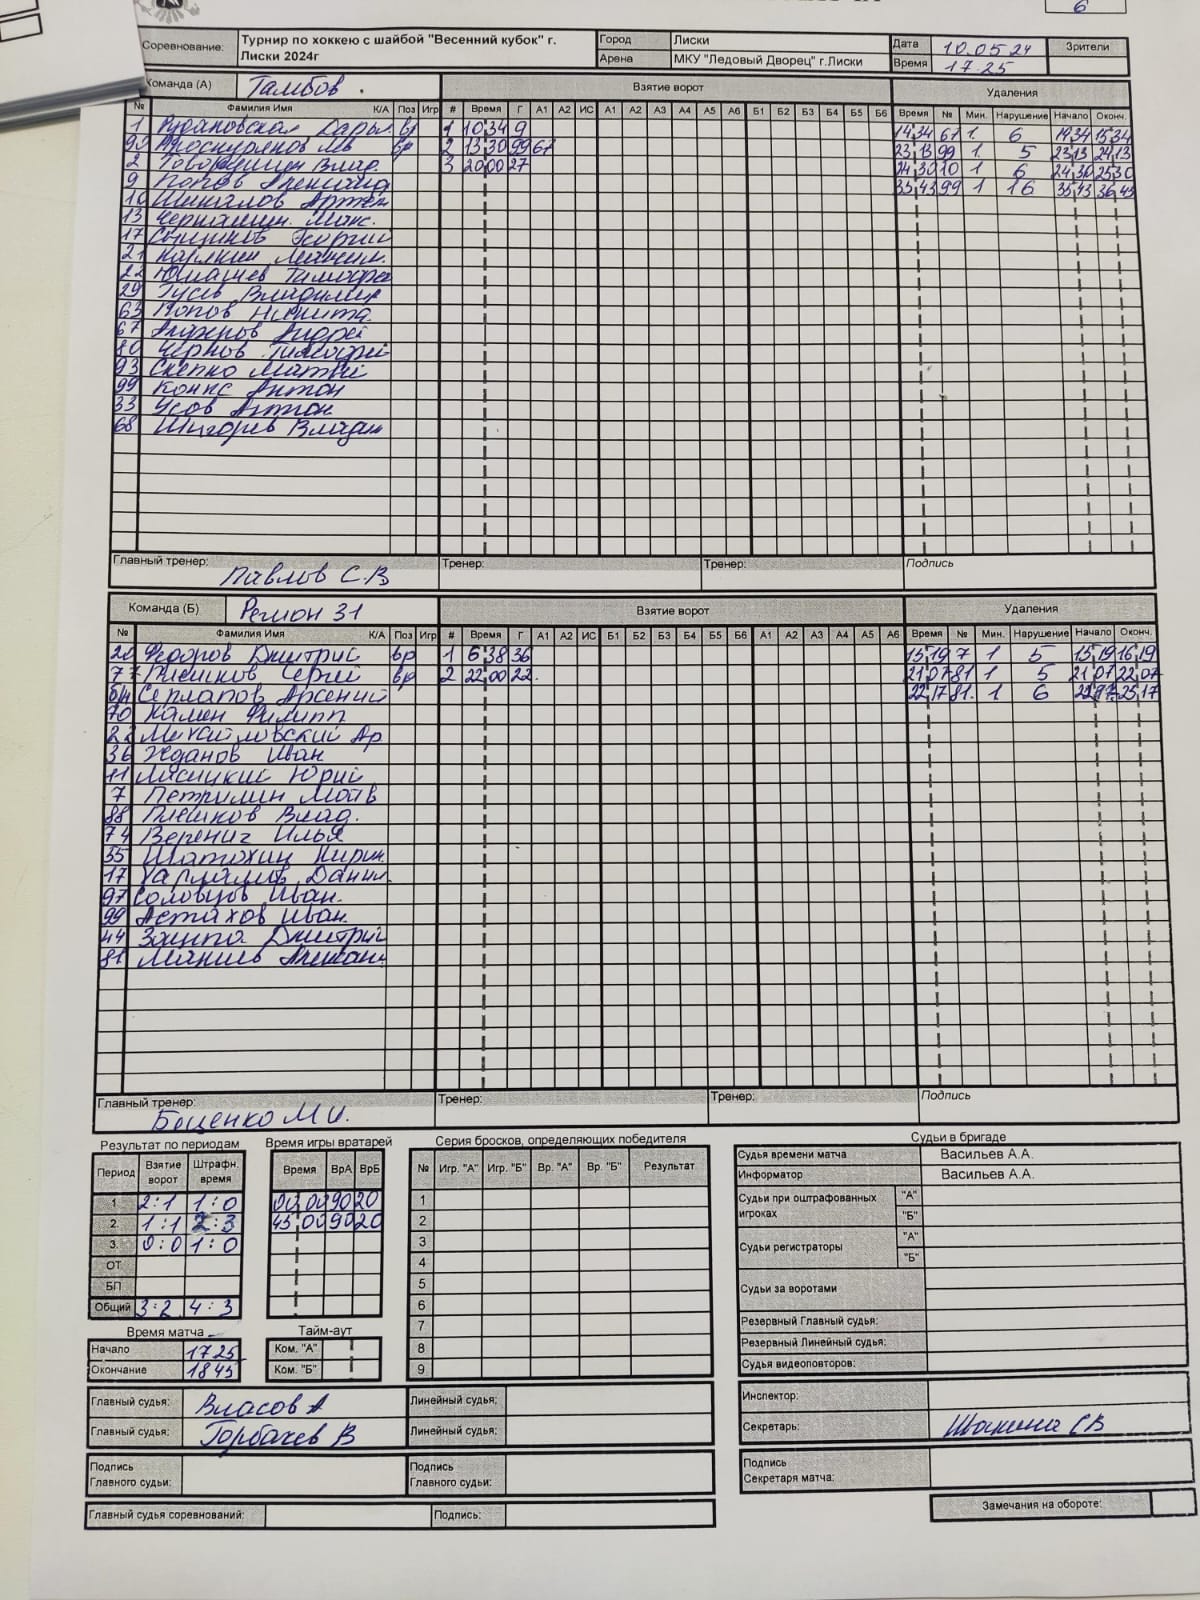 6
Соревнование: Турнир по хоккею с шайбой "Весенний кубок" г. Лиски 2024г Город Лиски Дата 10.05.24 Зрители
Арена МКУ "Ледовый Дворец" г.Лиски Время 17.25
Команда (А) Тамбов Взятие ворот Удаления
№ Фамилия Имя К/А Поз Игр # Время Г А1 А2 ИС А1 А2 А3 А4 А5 А6 Б1 Б2 Б3 Б4 Б5 Б6 Время № Мин. Нарушение Начало Оконч.
1 вр 1 10 34 9 14 34 67 1 6 14 34 15 34
90 вр 2 13 30 99 67 23 13 99 1 5 23 13 24 13
2 3 20 00 27 24 30 10 1 6 24 30 25 30
9 Попов 35 43 99 1 16 35 43 36 43
10 Артем
13 Макс.
17 Георгий
21
22 Юмашев Тимофе
29 Гусев Владимир
63 Попов Никита
67 Андрей
80 Чернов Тимофей
93 Матвей
99 Антон
33 Усов Антон
68
Главный тренер: Павлов С.В Тренер: Тренер: Подпись
Команда (Б) Регион 31 Взятие ворот Удаления
№ Фамилия Имя К/А Поз Игр # Время Г А1 А2 ИС Б1 Б2 Б3 Б4 Б5 Б6 А1 А2 А3 А4 А5 А6 Время № Мин. Нарушение Начало Оконч.
20 Федоров Дмитрий вр 1 6 38 36 15 19 7 1 5 15 19 16 19
77 Плешков Сергей вр 2 22 00 22 21 07 81 1 5 21 07 22 07
Арсений 22 17 81 1 6
70 Камен Филипп
22 Михайловский Ар
36 Жданов Иван
11 Юрий
7
88 Плешков Влад.
74 Веренич Илья
55 Шатохин Кирил
17 Данил
97 Соловцов Иван.
99 Астахов Иван
44 Дмитрий
81
Главный тренер: Боценко М И. Тренер: Тренер: Подпись
Результат по периодам Время игры вратарей Серия бросков, определяющих победителя Судьи в бригаде
Период Взятие ворот Штрафн. время Время ВрА ВрБ № Игр. "А" Игр. "Б" Вр. "А" Вр. "Б" Результат
Судья времени матча Васильев А.А.
Информатор Васильев А.А.
1 2:1 1:0 00 00 90 20 1
2. 1:1 2:3 45 00 90 20 2
3. 0:0 1:0 3
ОТ 4
БП 5
Общий 3:2 4:3 6
Судьи при оштрафованных игроках "А" "Б"
Судьи регистраторы "А" "Б"
Судьи за воротами
Резервный Главный судья:
Резервный Линейный судья:
Судья видеоповторов:
Время матча Тайм-аут 7
Начало 17 25 Ком. "А" 8
Окончание 18 45 Ком. "Б" 9
Главный судья: Власов А Линейный судья: Инспектор:
Главный судья: Горбачев В Линейный судья: Секретарь:
Подпись Главного судьи: Подпись Главного судьи: Подпись Секретаря матча:
Главный судья соревнований: Подпись: Замечания на обороте: